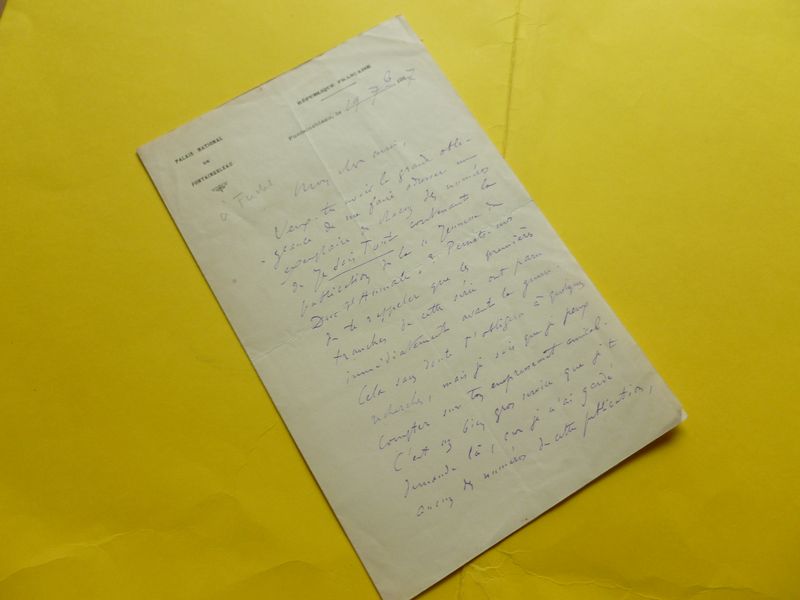 RÉPUBLIQUE FRANÇAISE
PALAIS NATIONAL
DE
FONTAINEBLEAU
Fontainebleau, le
à
Mon cher ami,
Veux-tu avoir la grande obli-
geance de me faire adresser un
exemplaire de chacun des numéros
de Je Sais Tout contenant la
publication de la "Jeunesse du
Duc d'Aumale". Permets-moi
de te rappeler que les premières
tranches de cette série ont paru
immédiatement avant la guerre.
Cela sans doute t'obligera à quelques
recherches, mais je sais que je peux
compter sur ton empressement amical.
C'est un bien gros service que je te
demande là, car je n'ai gardé
aucun des numéros de cette publication,